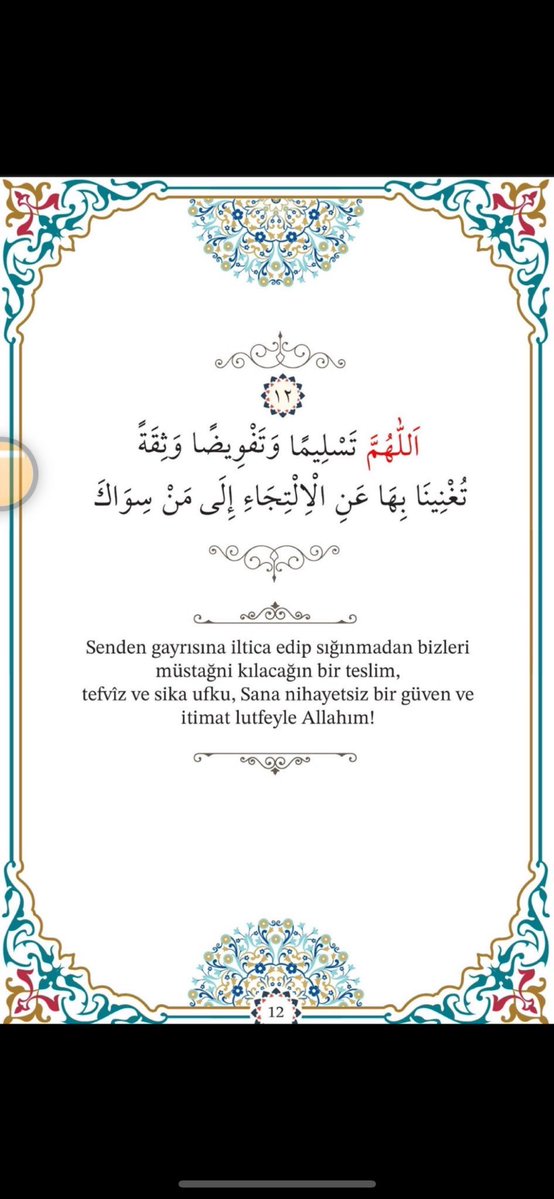 ١٢
اَللّٰهُمَّ تَسْلِيمًا وَتَفْوِيضًا وَثِقَةً
تُغْنِينَا بِهَا عَنِ الْاِلْتِجَاءِ إِلَى مَنْ سِوَاكَ
Senden gayrısına iltica edip sığınmadan bizleri
müstağni kılacağın bir teslim,
tefvîz ve sika ufku, Sana nihayetsiz bir güven ve
itimat lutfeyle Allahım!
12